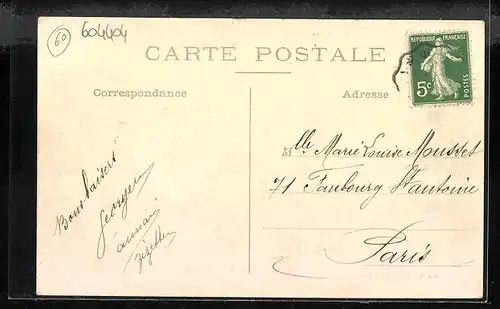 60
604404
CARTE POSTALE
REPUBLIQUE FRANÇAISE
5c
POSTES
Correspondance
Adresse
Bons baisers
Georges
Mlle Marie Louise Mousset
71 Faubourg St Antoine
Paris